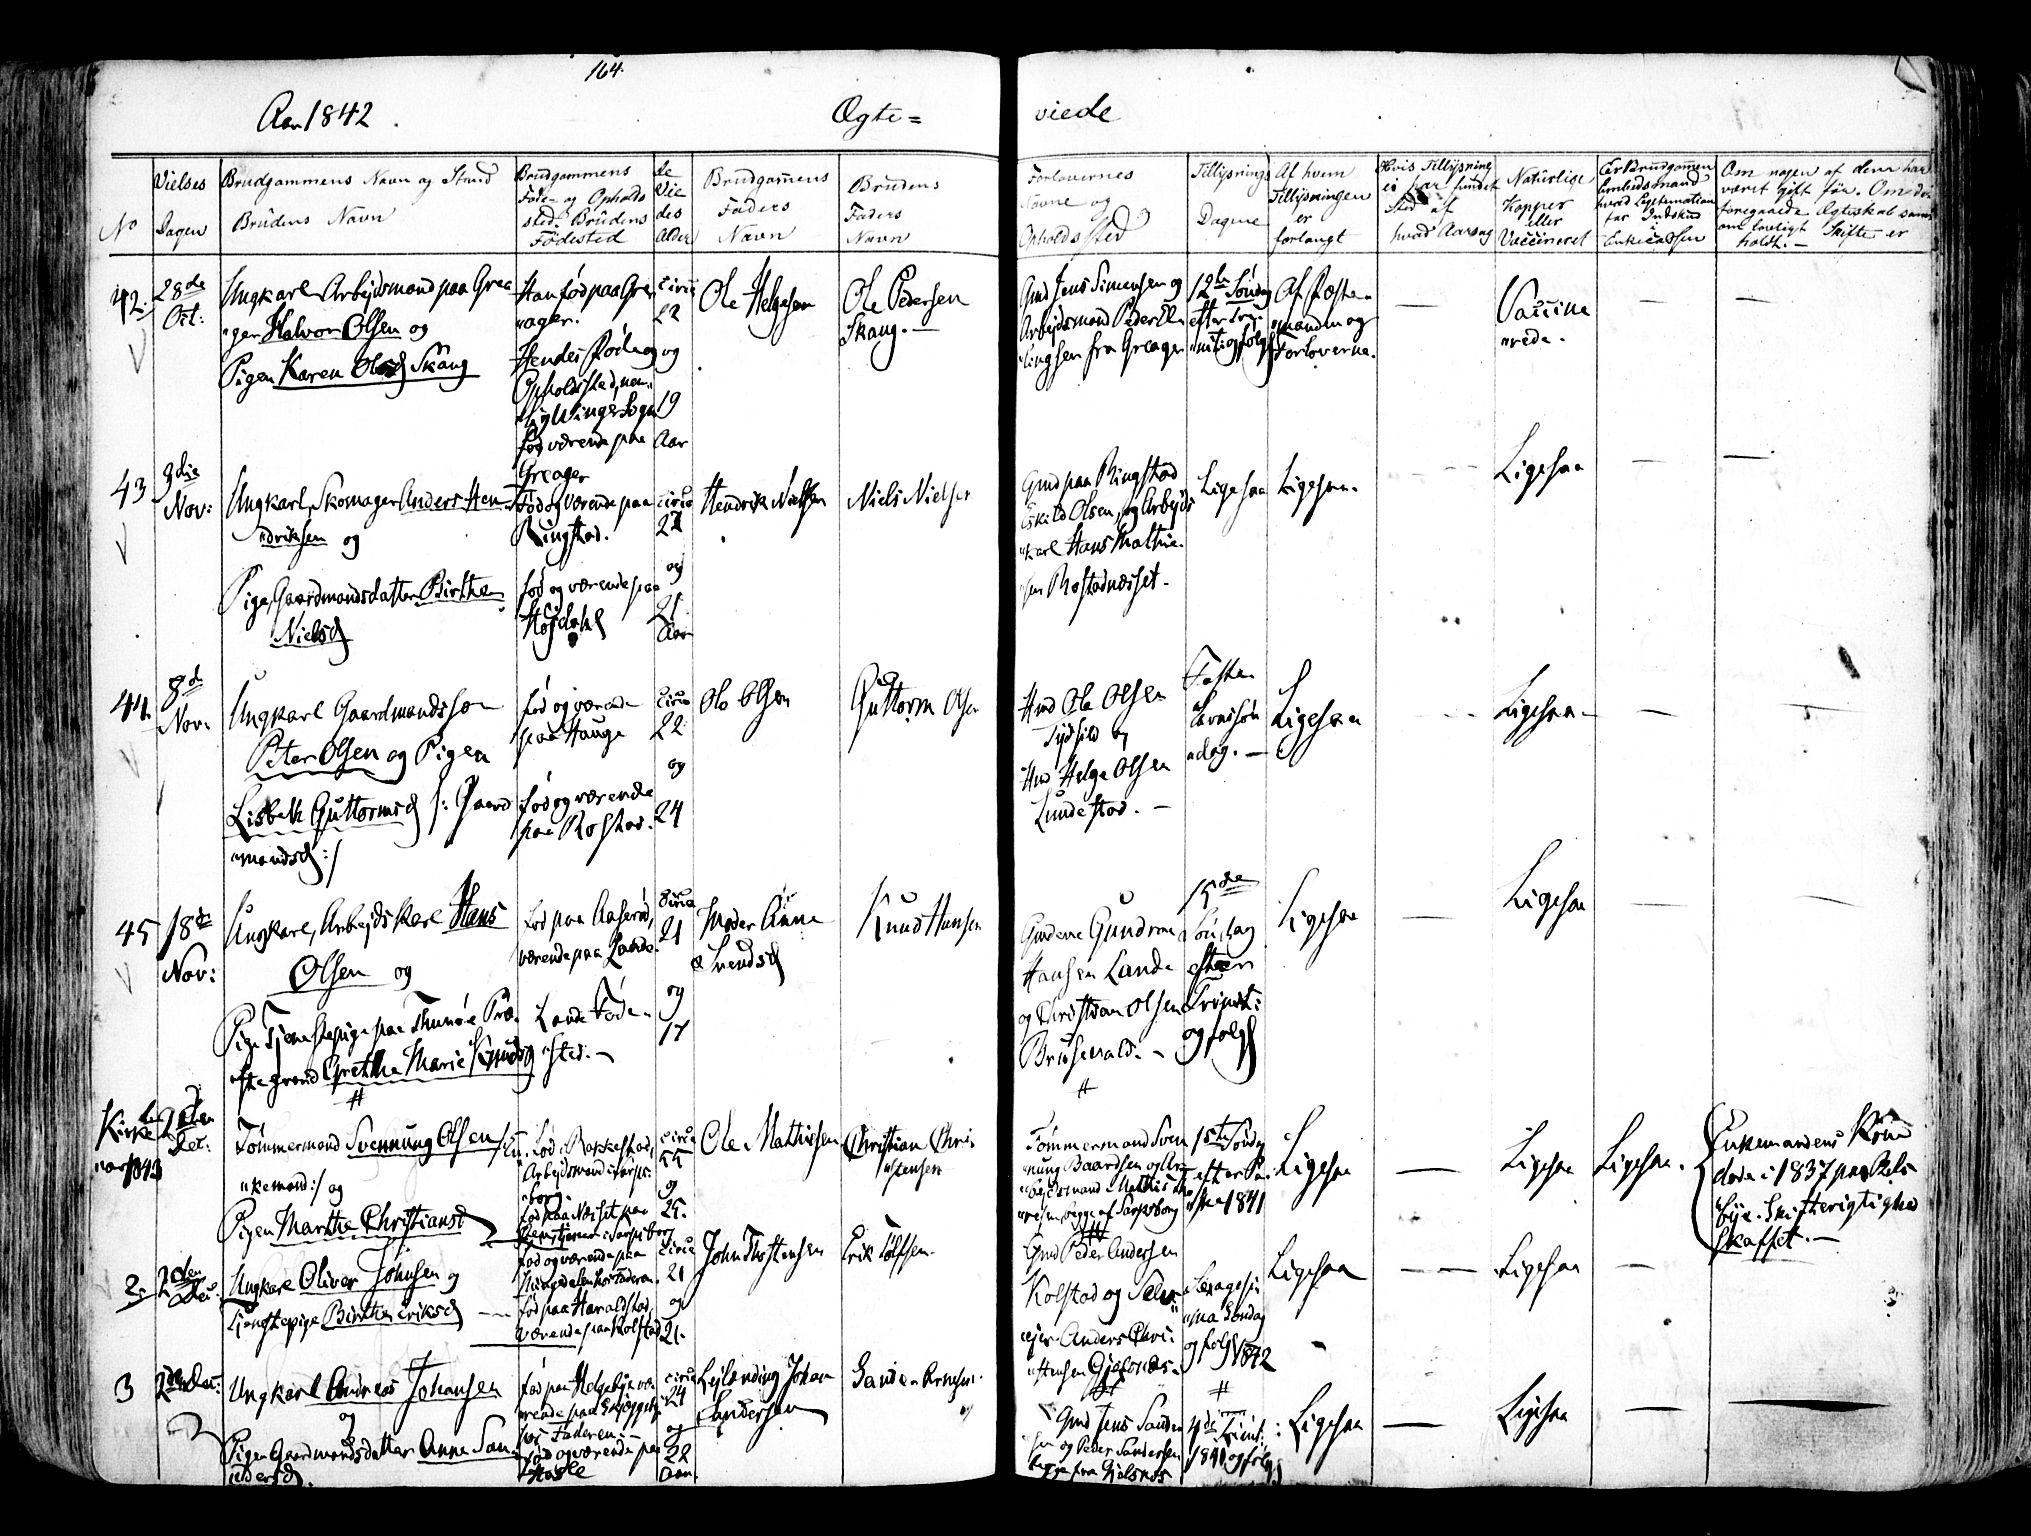 164.
Aar 1842
Ægte=
viede
No
Vielses
Dagen
Brudgammens Navn og Stand
Brudens Navn
Brudgammens
Føde- og Opholds
sted. Brudens
Fødested
de
Vie
des
Alder
Brudgammens
Faders
Navn
Brudens
Faders
Navn
Forlovernes
Navne og
Opholdssted
Tillysnings
Dagene
Af hvem
Tillysningen
er
forlangt
Hvis Tillysning
ei har fundet
Sted af
hvad Aarsag
Naturlige
Kopper
eller
Vaccineret
Om nogen af dem har
været gift før. Om det
foregaaede Ægteskab samt
om lovligt Skifte er
holdt.-
42.
28de
Oct:
Ungkarl Arbejdsmand paa Grea
ger Halvor Olsen og
Pigen Karen Olsd Skaug
Han født paa Gre
ager.
Hendes Føde og
Opholdssted, nem
født værende paa
Greager
circa
22
og
19
Aar
Ole Helgesen
Ole Pedersen
Skaug.
Gmd Jens Simensen og
Arbejdsmand Peder El
lingsen fra Greager
12te Søndag
efter Tri
nit: og følg
Af Fæste
manden og
Forloverne.
—
Vaccine
rede.
—
—
43
9die
Nov:
Ungkarl, Skomager Anders Hen
driksen og
Pige, Gaardmandsdatter Birthe
Nielsd
Født og værende paa
Ringstad.
fød og værende paa
circa
27
og
21
Aar
Hendrik Nielsen
Niels Nielsen
Gmd paa Ringstad
Eskild Olsen, og Arbejds
karl Hans Mathie
sen Rostadnæsset.
Ligesaa
Ligesaa.
Ligesaa
—
—
44.
8d
Nov.
Ungkarl Gaardmandssøn
Peter Olsen og Pigen
Lisbeth Guttormsd /: Gaard
mandsd :/
fød og værende
paa Hauge
fød og værende
paa Rostad.
circa
22
og
24
Ole Olsen
Guttorm Olsen
Gmd Ole Olsen
Gmd Helge Olsen
Lundestad. —
Faste
lavnssøn
dag. —
Ligesaa
Ligesaa
—
—
45
18de
Nov:
Ungkarl, Arbejdskarl Hans
Olsen og
Pige Tjenestepige paa Thunøe Præ
stegrend Grethe Marie Knudsd
fød paa Aaserød,
værende paa Lande.
Lande Føde
sted. —
circa
21
og
17
Moder Anne
Svendsd
Knud Hansen
Gmdene Gundro
Hansen Lande
og Christian Olsen
Brusevald. —
15de
Søndag
efter
Trinit:
og følg
Ligesaa
—
Ligesaa
—
—
Kirke
aar 1843
2den
Dec.
Tømmermand Svennung Olsen /: En
kemand :/ og
Pigen Marthe Christiansd
Fød i Rakkestad,
Arbejdsmand i Sarps
borg.
fød paa Næsset paa
circa
55
og
25.
Ole Mathisen
Christian Chri
stensen
Tømmermand Sven
nung Baardsen og Ar
bejdsmand Mathis
begge af Sarpsborg
1ste Søndag
efter Pa
ske 1841
Ligesaa
—
Ligesaa
Ligesaa.
Enkemandens Kone
døde i 1837 paa
bye. Skifterigtighed
skaffet. —
2.
2den
Dec:
Ungkarl Oliver Johnsen og
Tjenestepige Birthe Eriksd
fød og værende paa
fød paa Haraldstad,
værende paa Kolstad
circa
21
og
21.
John Thostensen
Erik Tolfsen.
Gmd Peder Andersen
Kolstad og Selv
ejer Anders Chri
stensen
Sexagesi
ma Søndag
og følg 1842
Ligesaa
—
Ligesaa
—
3
2den Dec:
Ungkarl Andreas Johansen
og
Pigen Gaardmandsdatter Anne San
dersd.
fød paa Helgebye væ
rende paa
hos Faderen.
fød og værende paa
Hasle
circa
24
og
22
Aar.
Lejlænding Johan
Sandersen
Sander Arnesen.
Gmd Jens Sander
sen og Peder Sandersen
begge fra Gjelsnæs
4de Trinit:
1841 og følg
Ligesaa
—
Ligesaa
—
—